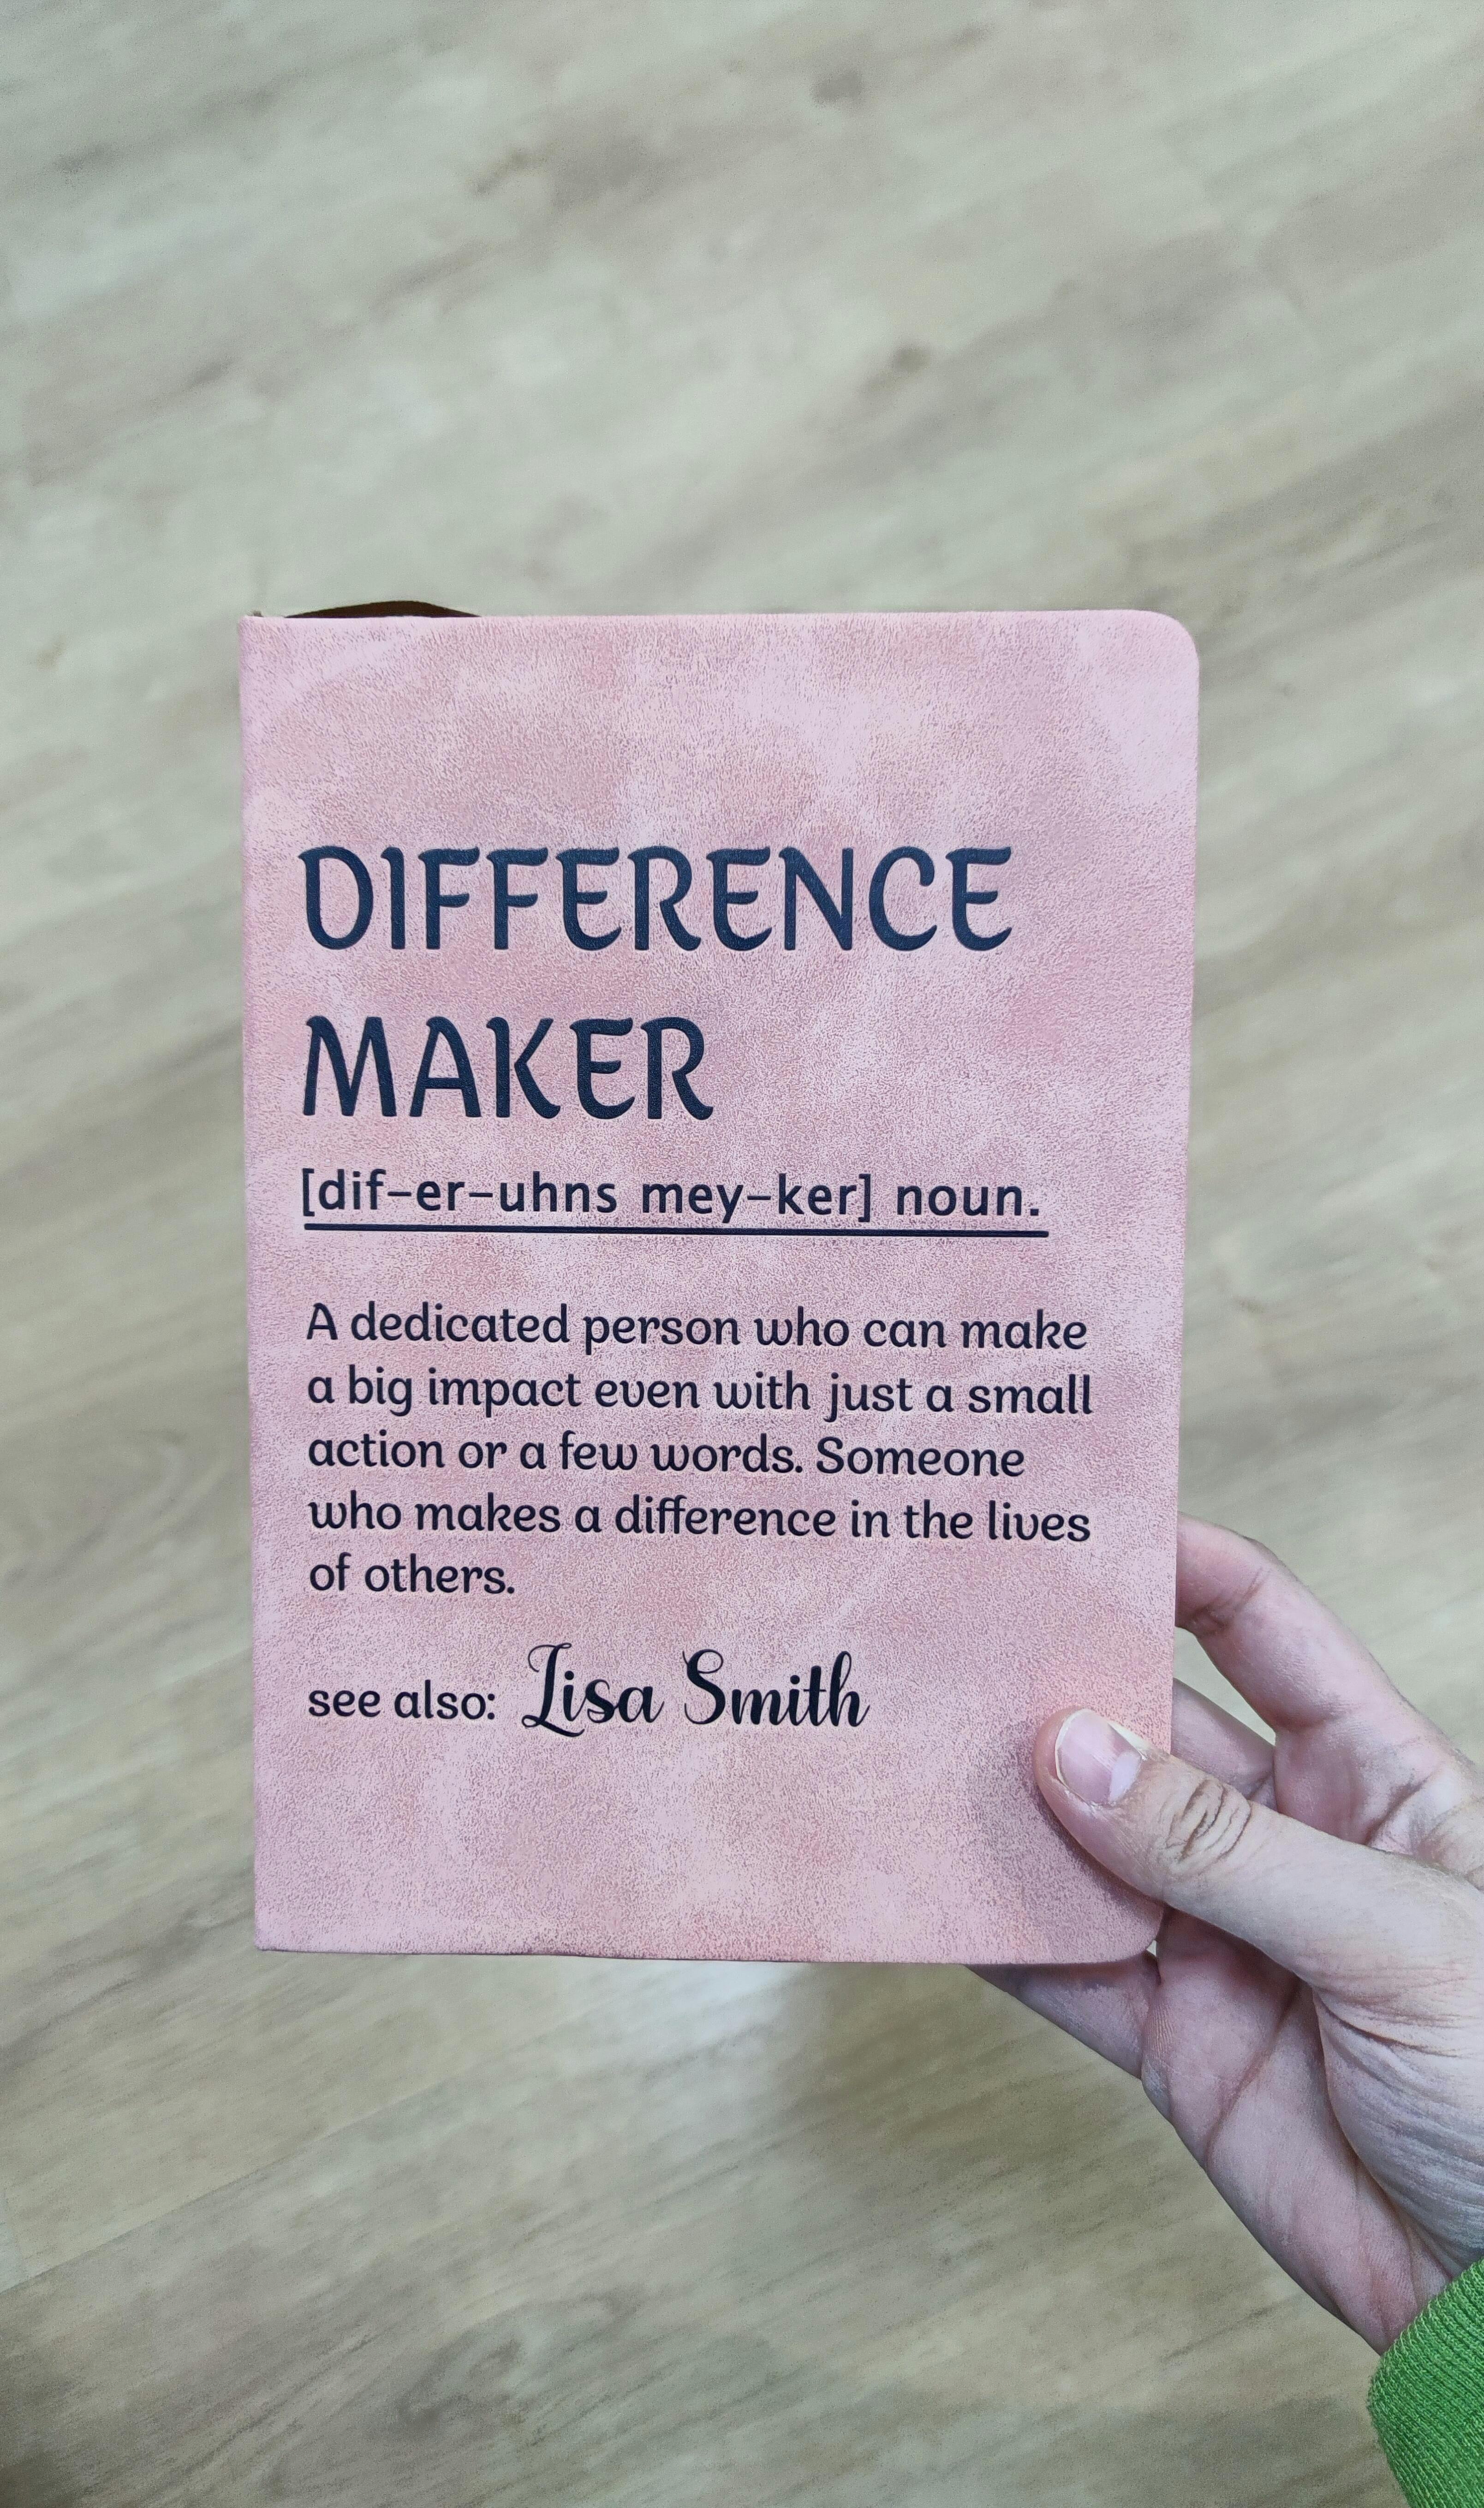 DIFFERENCE
MAKER
[dif-er-uhns mey-ker] noun.
A dedicated person who can make
a big impact even with just a small
action or a few words. Someone
who makes a difference in the lives
of others.
see also: Lisa Smith